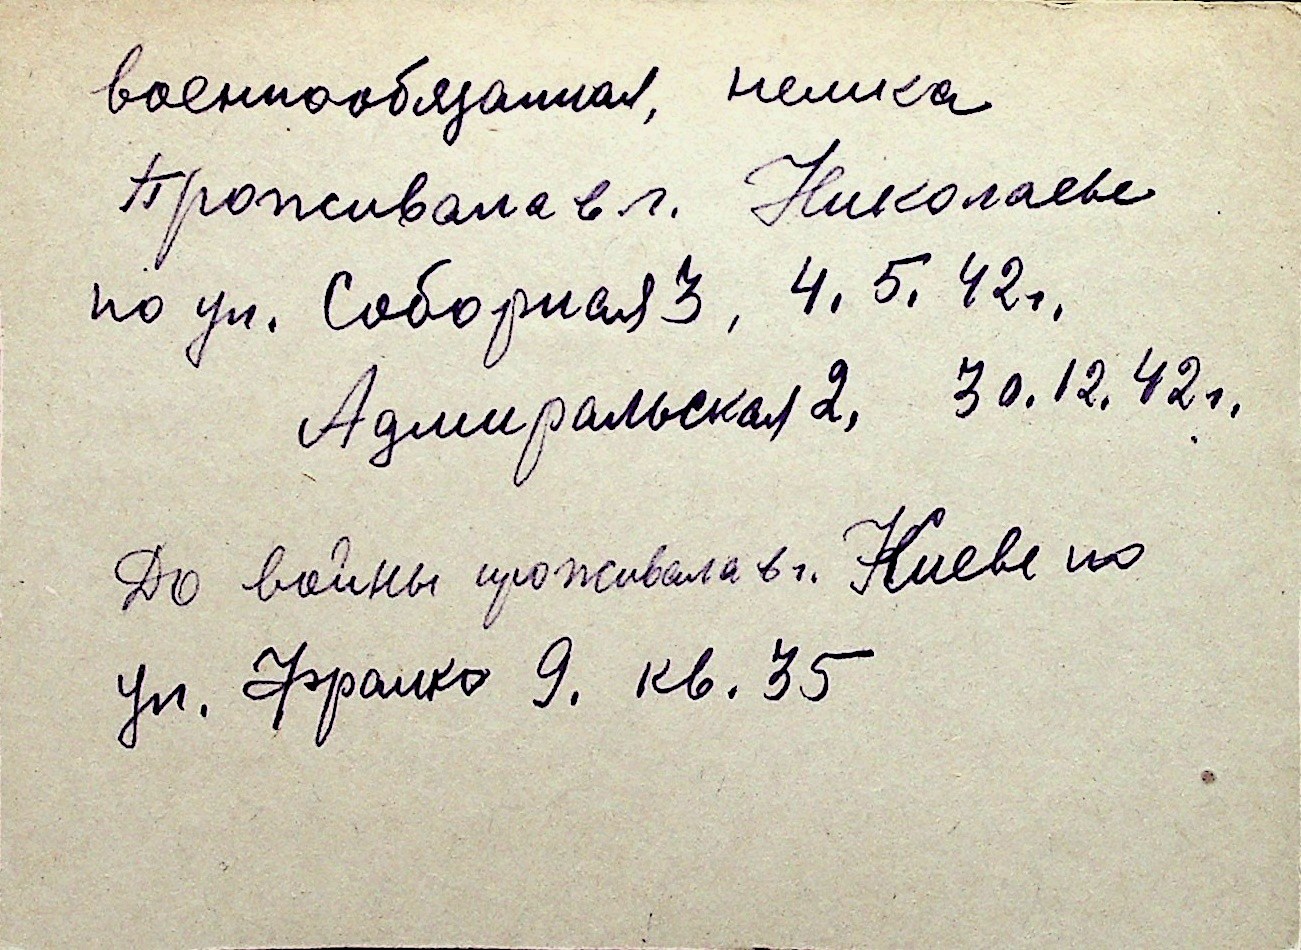 военнообязанная, немка
Проживала в г. Николаеве
по ул. Соборная 3, 4. 5. 42г.
Адмиральская 2, 30. 12. 42г.
До войны проживала в г. Киеве по
ул. Франко 9. кв. 35